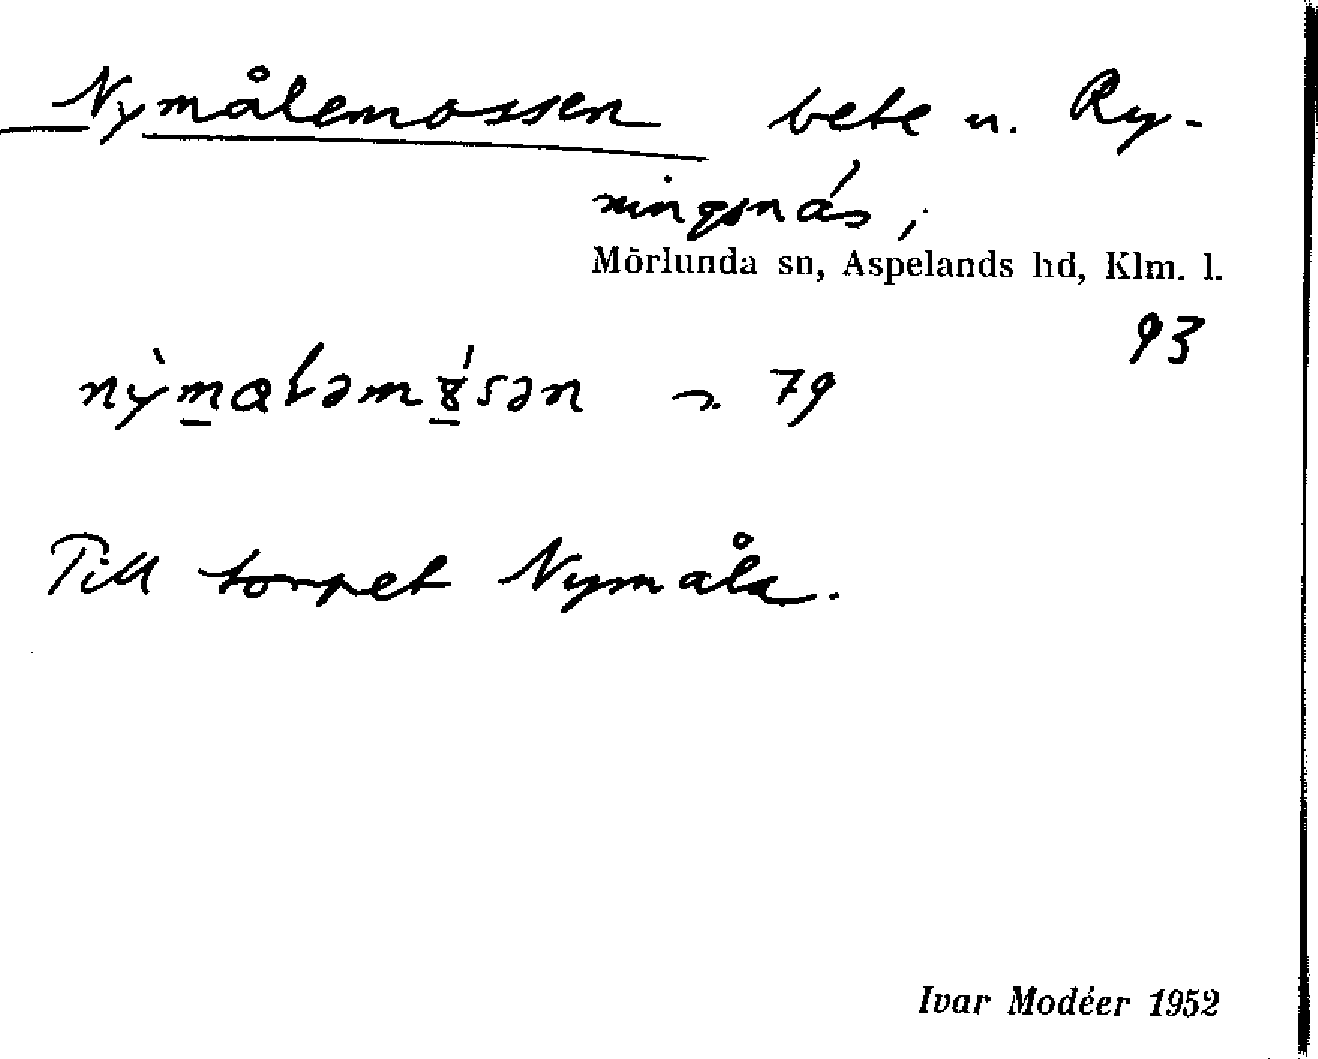 Nymålemossen bete u. Ry-
ningsnäs,
Mörlunda sn, Aspelands hd, Klm. l.
93
79
Till torpet Nymåla.
Ivar Modéer 1952